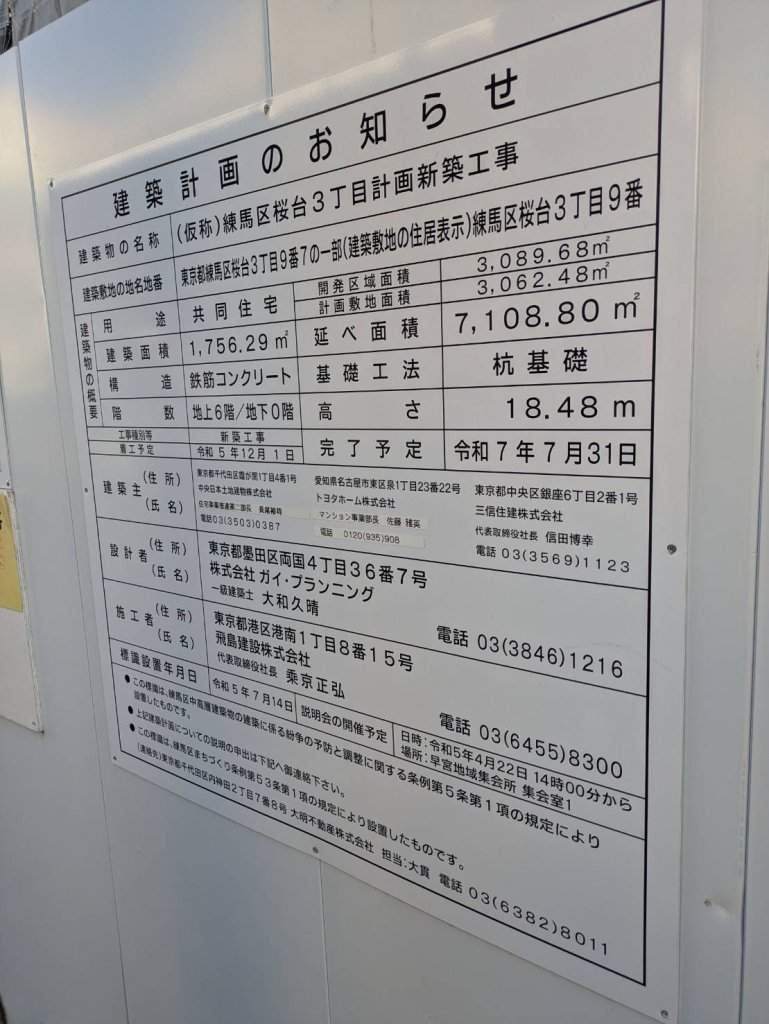 建築計画のお知らせ
建築物の名称 (仮称)練馬区桜台3丁目計画新築工事
建築敷地の地名地番 東京都練馬区桜台3丁目9番7の一部(建築敷地の住居表示)練馬区桜台3丁目9番
建築物の概要
用途 共同住宅
開発区域面積 3,089.68㎡
計画敷地面積 3,062.48㎡
建築面積 1,756.29㎡ 延べ面積 7,108.80㎡
構造 鉄筋コンクリート 基礎工法 杭基礎
階数 地上6階/地下0階 高さ 18.48m
工事種別等 新築工事
着工予定 令和5年12月1日 完了予定 令和7年7月31日
建築主 (住所) (氏名)
東京都千代田区霞が関1丁目4番1号
中央日本土地建物株式会社
住宅事業推進第二部長 長尾
電話03(3503)0387
愛知県名古屋市東区泉1丁目23番22号
トヨタホーム株式会社
マンション事業部長 佐藤 雅英
電話 0120(935)908
東京都中央区銀座6丁目2番1号
三信住建株式会社
代表取締役社長 信田博幸
電話 03(3569)1123
設計者 (住所) (氏名)
東京都墨田区両国4丁目36番7号
株式会社 ガイ・プランニング
一級建築士 大和久晴
電話 03(3846)1216
施工者 (住所) (氏名)
東京都港区港南1丁目8番15号
飛島建設株式会社
代表取締役社長 乗京正弘
電話 03(6455)8300
標識設置年月日 令和5年7月14日 説明会の開催予定
日時:令和5年4月22日 14時00分から
場所:早宮地域集会所 集会室1
●この標識は、練馬区中高層建築物の建築に係る紛争の予防と調整に関する条例第5条第1項の規定により
設置したものです。
●上記建築計画についての説明の申出は下記へ御連絡下さい。
●この標識は、練馬区まちづくり条例第53条第1項の規定により設置したものです。
(連絡先)東京都千代田区内神田2丁目7番8号 大明不動産株式会社 担当:大貫 電話 03(6382)8011